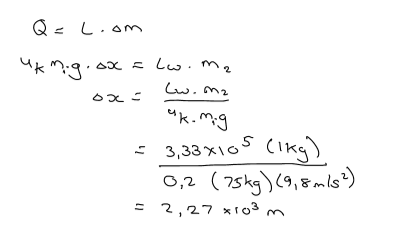 Q = L . Δm
μk m1 . g . Δx = Lw . m2
Δx = Lw . m2 / μk . m1 g
= 3,33 × 10^5 (1kg) / 0,2 (75kg) (9,8 m/s²)
= 2,27 × 10³ m